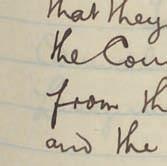 that they
the Cou
from th
and the